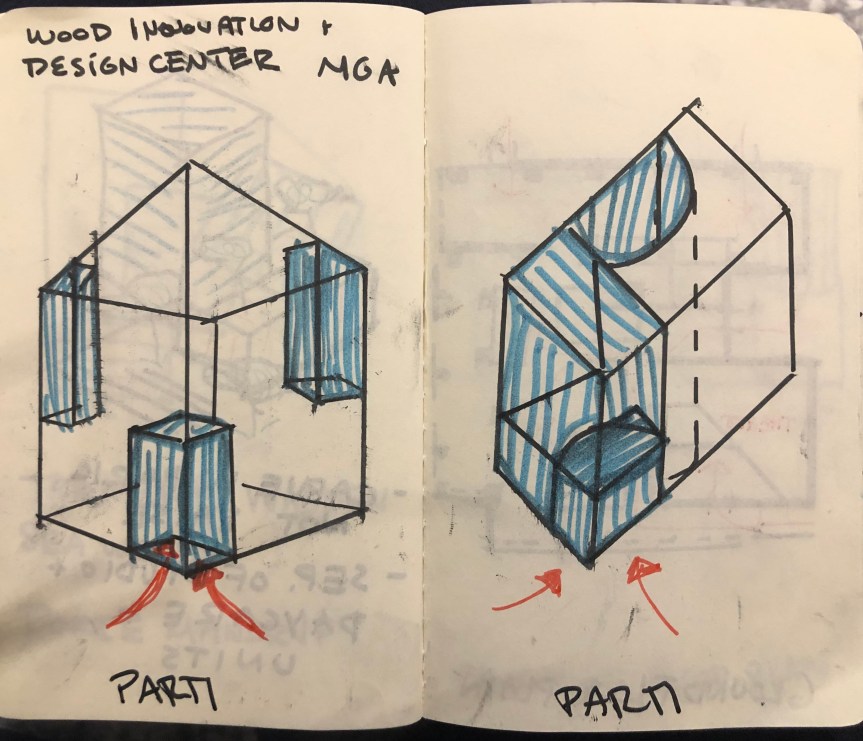 WOOD INNOVATION +
DESIGN CENTER MGA
PARTI
PARTI